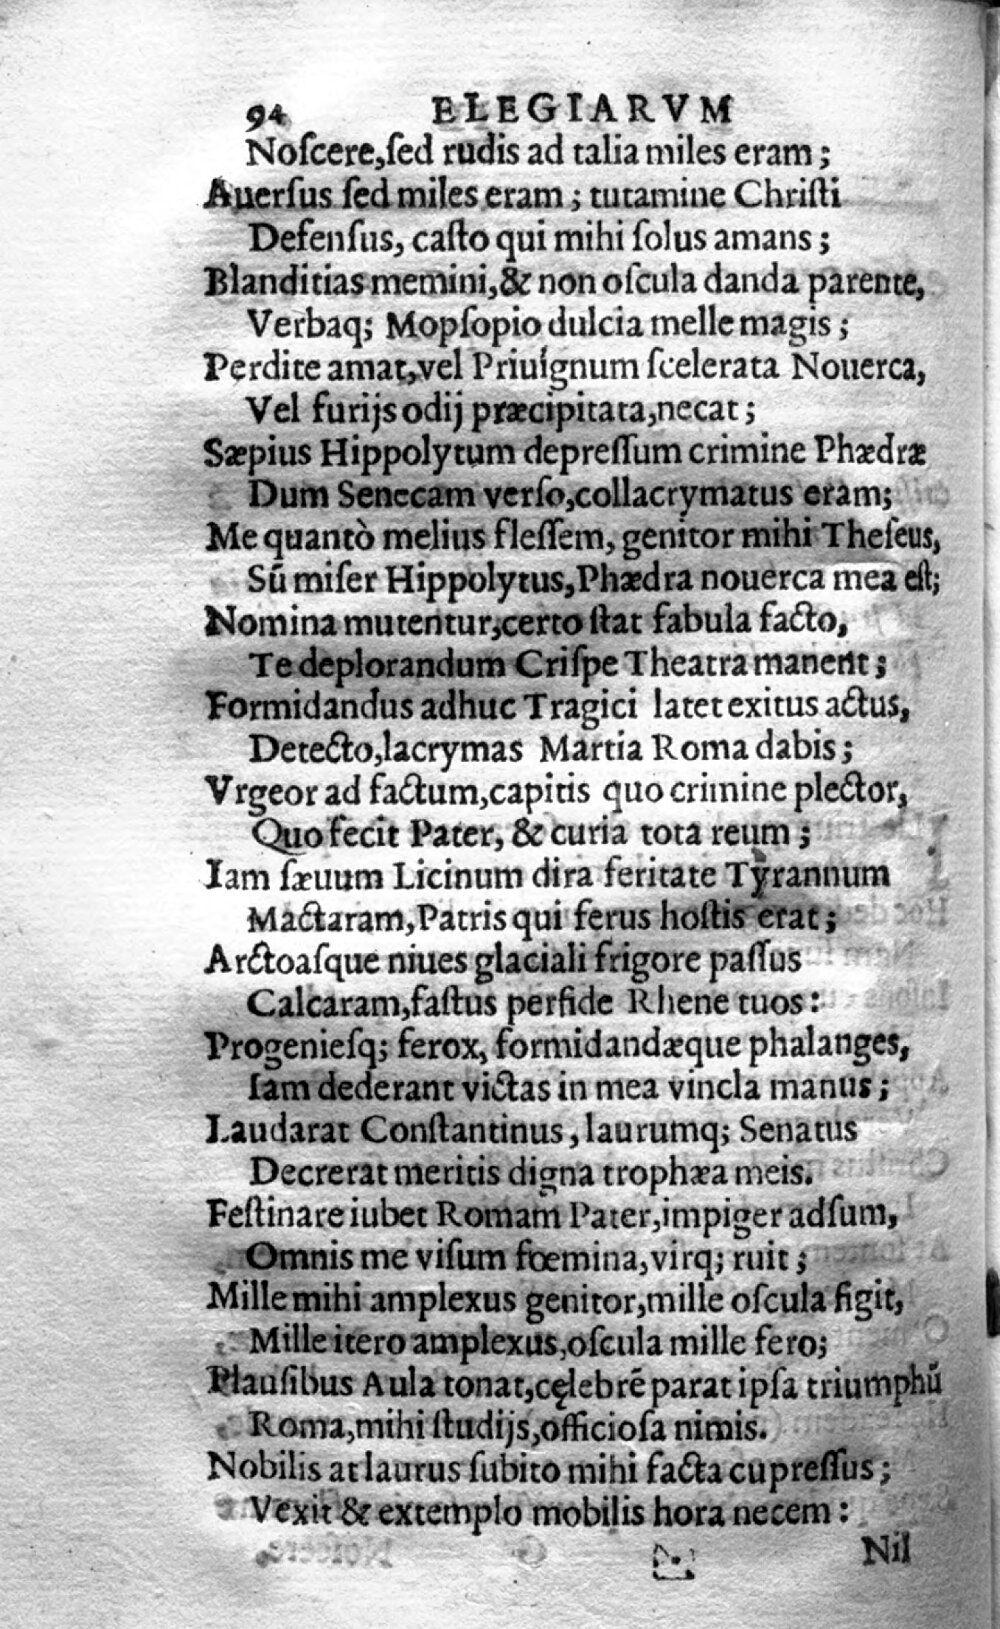 94 ELEGIARVM
Noſcere,ſed rudis ad talia miles eram;
Auerſus ſed miles eram; tutamine Chriſti
Defenſus, caſto qui mihi ſolus amans;
Blanditias memini,& non oſcula danda parente,
Verbaq; Mopſopio dulcia melle magis;
Perdite amat,vel Priuignum ſcelerata Nouerca,
Vel furijs odij præcipitata,necat;
Sæpius Hippolytum depreſſum crimine Phædræ
Dum Senecam verſo,collacrymatus eram;
Me quantò melius fleſſem, genitor mihi Theſeus,
Sū miſer Hippolytus,Phædra nouerca mea eſt;
Nomina mutentur,certo ſtat fabula facto,
Te deplorandum Criſpe Theatra manent;
Formidandus adhuc Tragici latet exitus actus,
Detecto,lacrymas Martia Roma dabis;
Vrgeor ad factum,capitis quo crimine plector,
Quo fecit Pater, & curia tota reum;
Iam ſæuum Licinum dira feritate Tyrannum
Mactaram,Patris qui ferus hoſtis erat;
Arctoaſque niues glaciali frigore paſſus
Calcaram,faſtus perfide Rhene tuos:
Progenieſq; ferox, formidandæque phalanges,
Iam dederant victas in mea vincla manus;
Laudarat Conſtantinus, laurumq; Senatus
Decrerat meritis digna trophæa meis.
Feſtinare iubet Romam Pater,impiger adſum,
Omnis me viſum fœmina,virq; ruit;
Mille mihi amplexus genitor,mille oſcula figit,
Mille itero amplexus,oſcula mille fero;
Plauſibus Aula tonat,cęlebrē parat ipſa triumphū
Roma,mihi ſtudijs,officioſa nimis.
Nobilis at laurus ſubito mihi facta cupreſſus;
Vexit & extemplo mobilis hora necem:
Nil